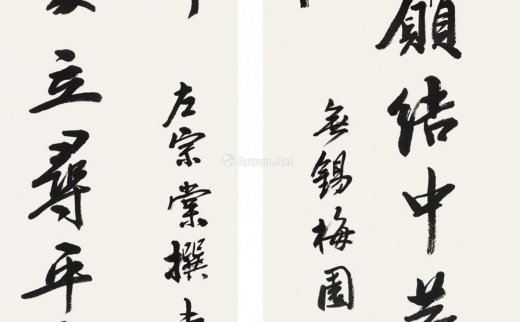 願結中
無錫梅園
左宗棠撰
立尋平
Artron.Net